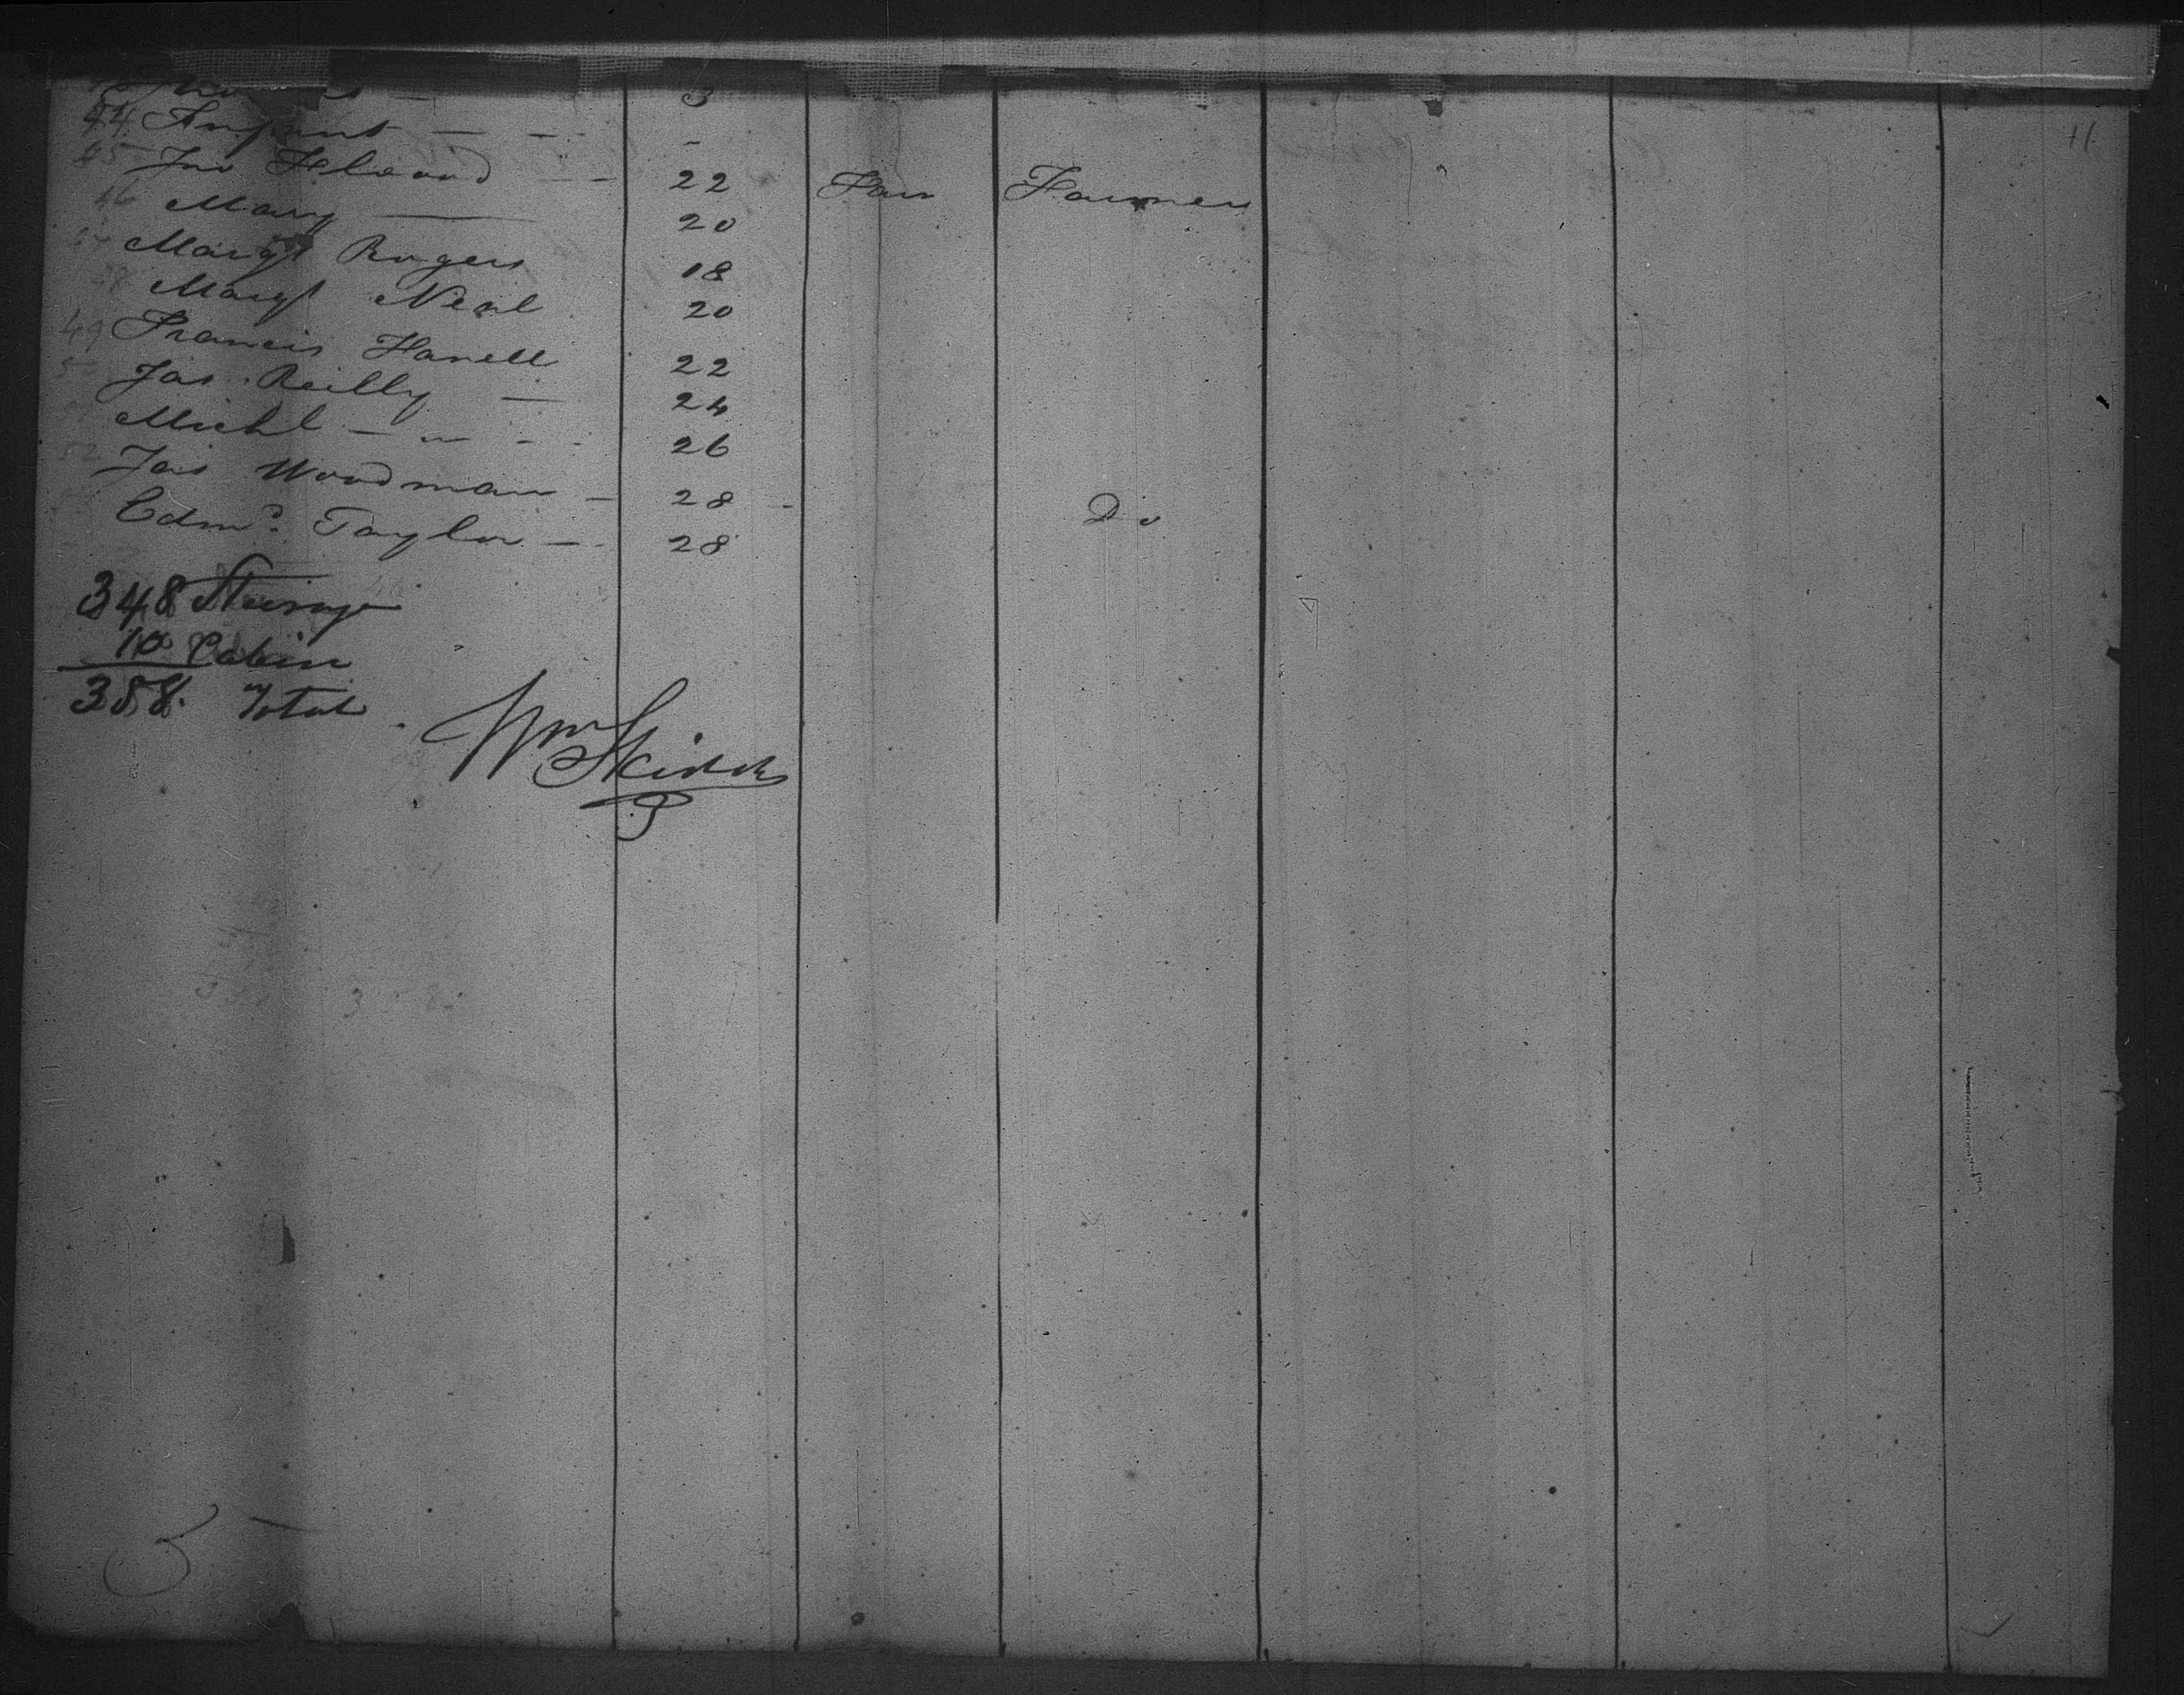 3
44 Infant — -
45 Jno — 22 Farmer
46 Mary — 20
47 Margt Rogers 18
48 Margt Neal 20
49 Francis 22
50 Jas. Reilly — 24
51 Michl — " — - 26
52 Jas Woodman — 28 - Do
Edmd. Taylor — 28
348 Steerage
10 Cabin
358. Total
Wm Skiddy
5